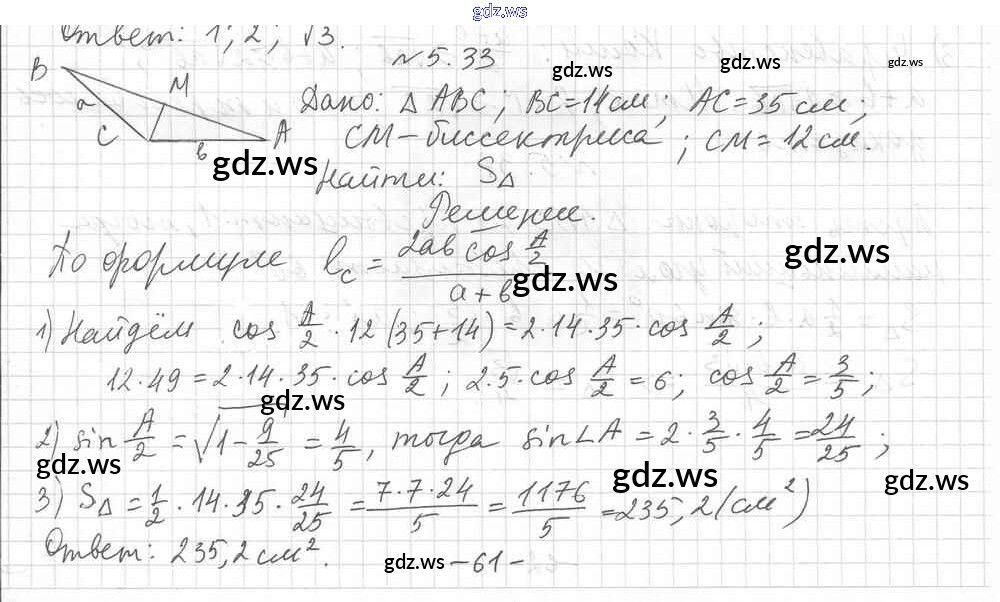 gdz.ws
Ответ: 1; 2; √3.
№5.33
gdz.ws gdz.ws gdz.ws
B M a C в A
Дано: △ ABC; BC=14см; AC=35см;
CM-биссектриса; CM=12см.
gdz.ws
Найти: S△
Решение.
По формуле lc = 2ab cos A/2 / a+b
gdz.ws gdz.ws
1) Найдём cos A/2 · 12 (35+14) = 2·14·35·cos A/2;
12·49 = 2·14·35·cos A/2; 2·5·cos A/2 = 6; cos A/2 = 3/5;
gdz.ws
2) sin A/2 = √1-9/25 = 4/5, тогда sin∠A = 2·3/5·4/5 = 24/25;
gdz.ws gdz.ws gdz.ws
3) S△ = 1/2·14·35·24/25 = 7·7·24/5 = 1176/5 = 235,2 (см²)
Ответ: 235,2 см².
gdz.ws -61-